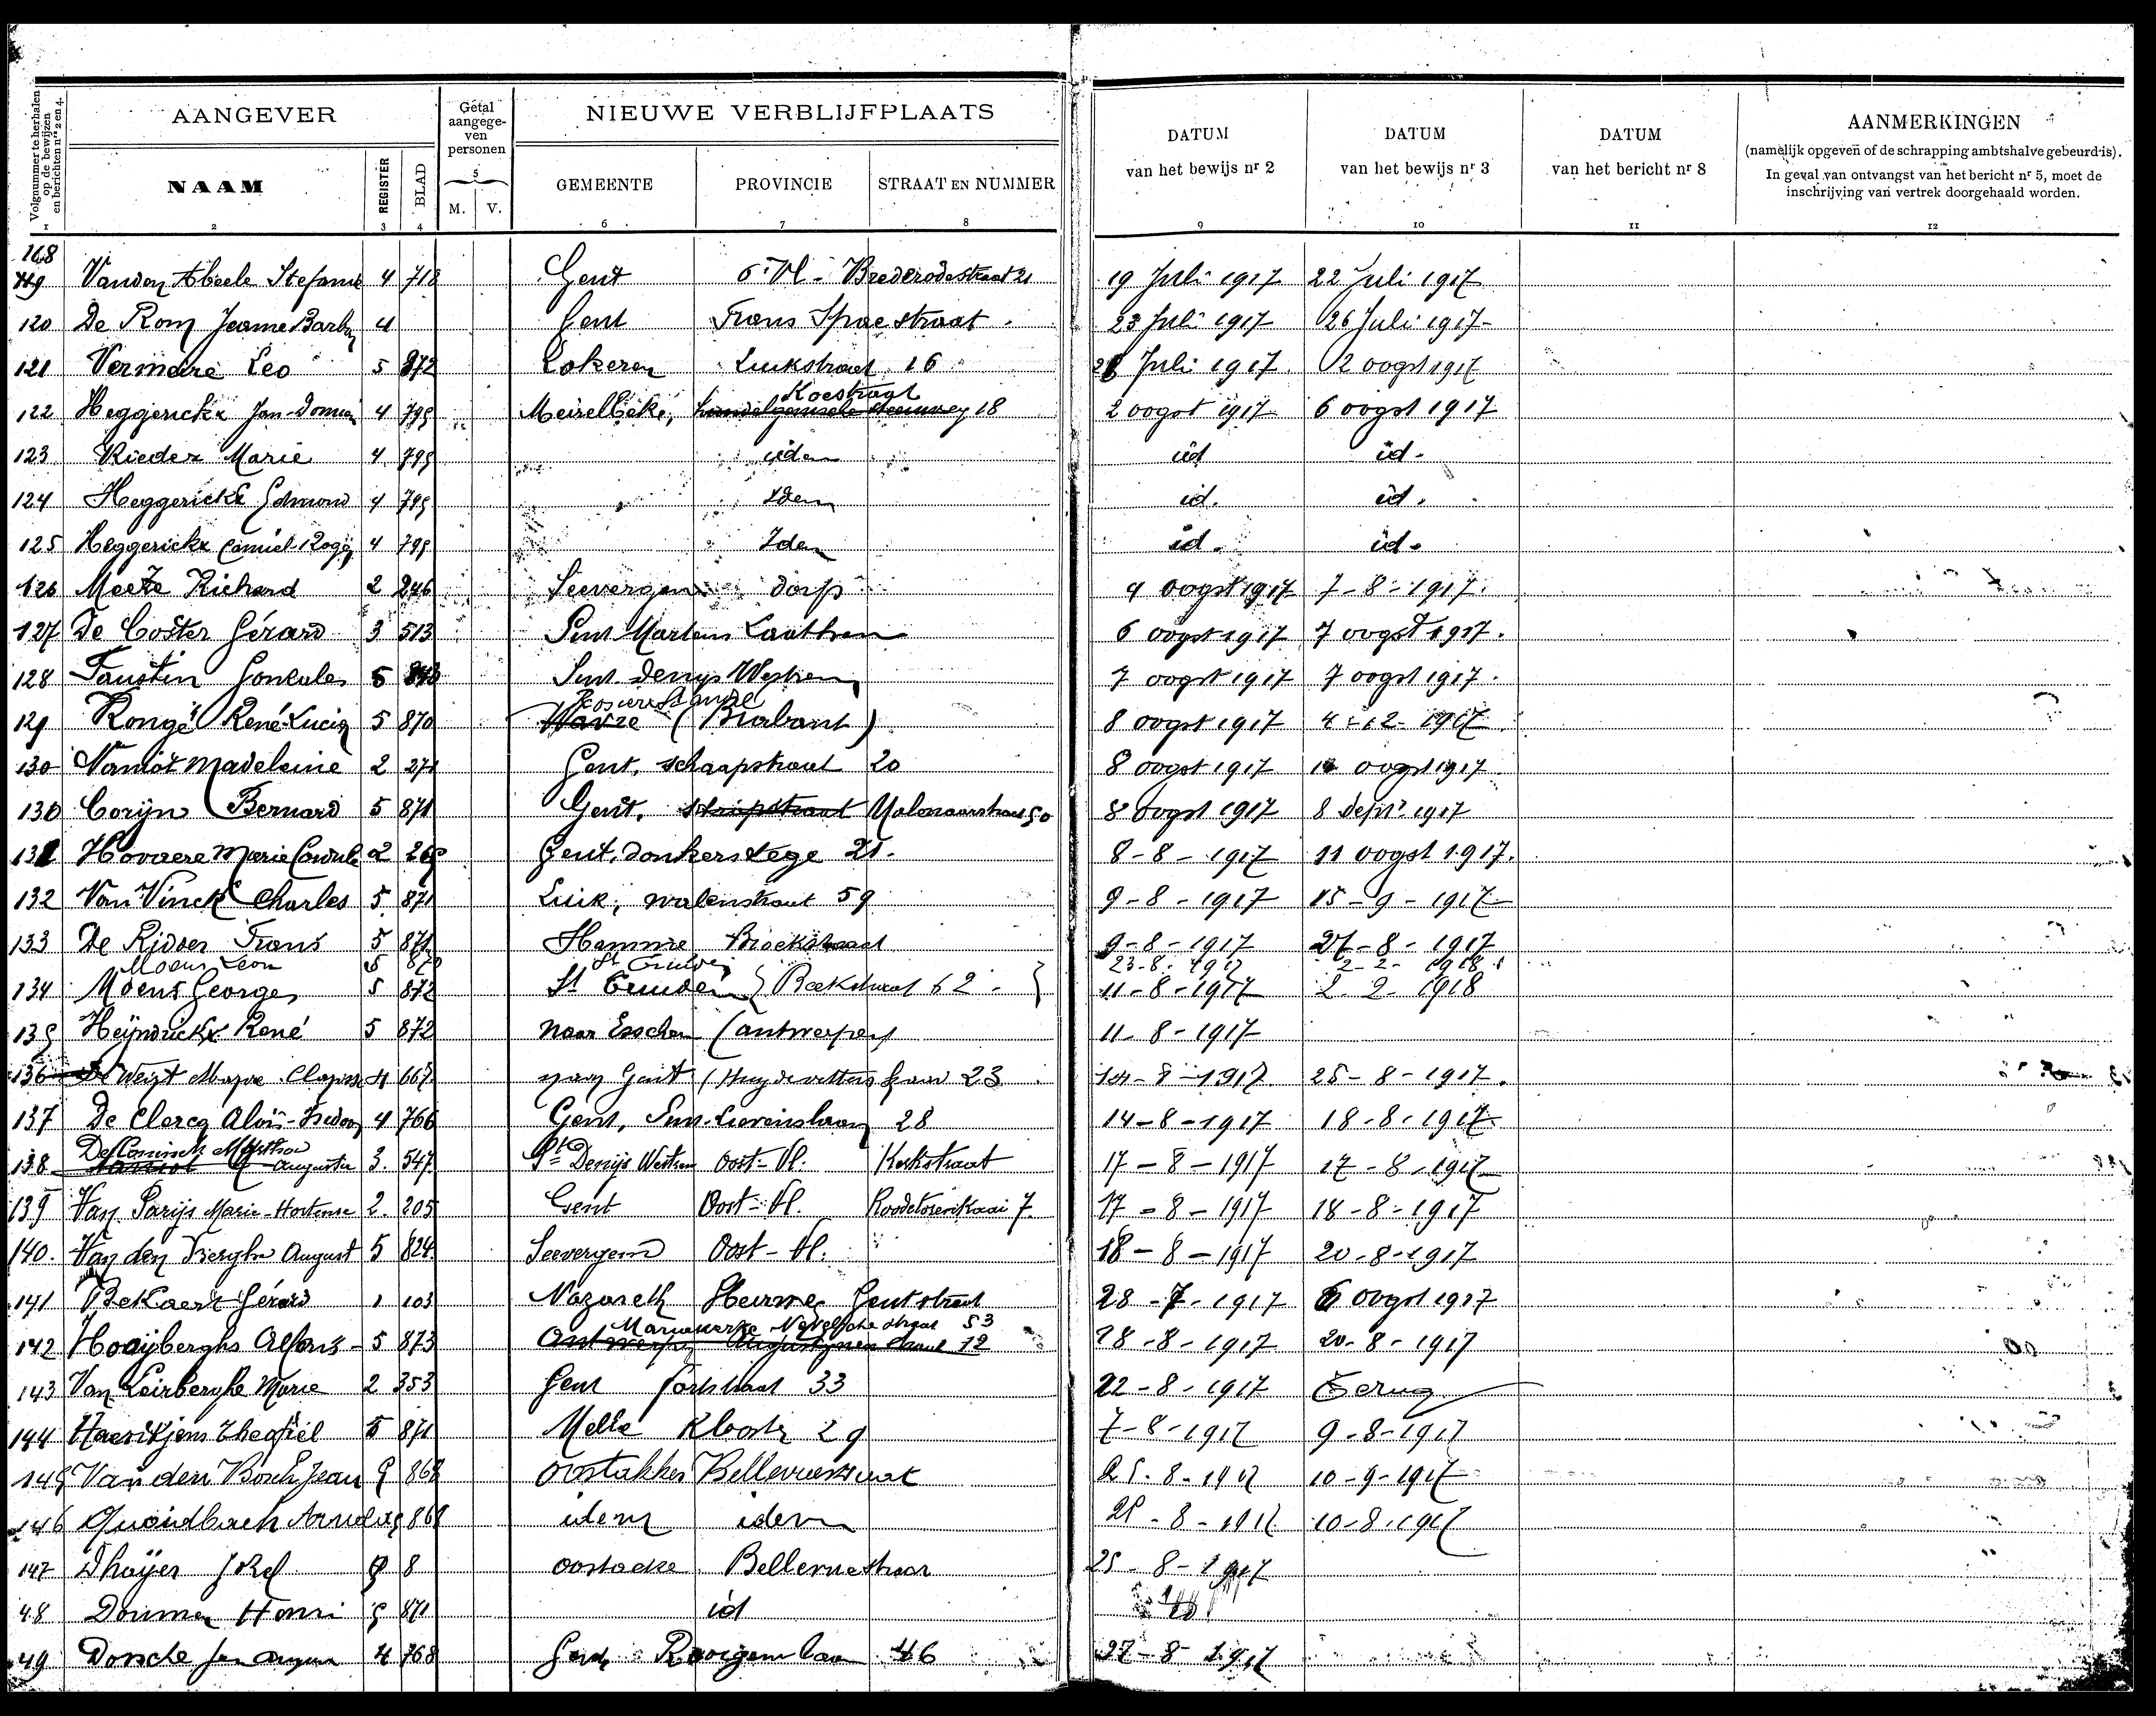 Volgnummer te herhalen op de bewijzen en berichten nrs 2 en 4.
AANGEVER
Getal aangegeven personen
NIEUWE VERBLIJFPLAATS
DATUM van het bewijs nr 2
DATUM van het bewijs nr 3
DATUM van het bericht nr 8
AANMERKINGEN
(namelijk opgeven of de schrapping ambtshalve gebeurd is).
In geval van ontvangst van het bericht nr 5, moet de
inschrijving van vertrek doorgehaald worden.
NAAM REGISTER BLAD 5 M. V. GEMEENTE PROVINCIE STRAAT EN NUMMER
1 2 3 4 6 7 8 9 10 11 12
119 Vanden Abeele Stefanie 4 718 Gent O. Vl. Brederodestraat 21 19 Juli 1917 22 Juli 1917
120 De Rom Jeanne 4 Gent Frans Spae straat 23 Juli 1917 26 Juli 1917
121 Vermeire Leo 5 872 Lokeren Luikstraat 16 28 Juli 1917 2 oogst 1917
Koestraat
122 Heggerickx Jan 4 795 Meirelbeke, 18 2 oogst 1917 6 oogst 1917
123 Rieder Marie 4 795 idem id id.
124 Heggerickx Edmond 4 795 Idem id. id.
125 Heggerickx Camiel 4 795 Idem id. id.
126 Meete Richard 2 246 Seevergem dorp 4 oogst 1917 7-8-1917.
127 De Coster Gérard 3 513 Sint Martens Laathem 6 oogst 1917 7 oogst 1917.
128 Faustin Gonzales 5 Sint Denys Westrem 7 oogst 1917 7 oogst 1917.
129 Rongé René Lucien 5 870 Wavre (Brabant) 8 oogst 1917 4-12-1917
130 Vaniot Madeleine 2 271 Gent, schaapstraat 20 8 oogst 1917 oogst 1917
130 Corijn Bernard 5 871 Gent, 8 oogst 1917 8 Sept 1917
131 Hovaere Marie 2 Gent, donkerstege 21. 8-8-1917 11 oogst 1917.
132 Van Vinck Charles 5 871 Luik, walenstraat 59 9-8-1917 15-9-1917
133 De Ridder Frans 5 871 Hamme Broekstraat 9-8-1917 27-8-1917
Moens Leon 5 872 St Truiden 23-8-1917 2-2-1918
134 Moens Georges 5 872 St Truiden Beekstraat 62 11-8-1917 2-2-1918
135 Heijndrickx René 5 872 naar Esschen (antwerpen) 11-8-1917
136 De Weirt 4 667 naar Gent (Huydevetters kaai 23 14-8-1917 25-8-1917.
137 De Clercq Aloïs-Isidoor 4 766 Gent, Sint-Lievenslaan 28 14-8-1917 18-8-1917
De Coninck Martha
138 Augusta 3. 547 St Denijs Westrem Oost-Vl. Kerkstraat 17-8-1917 17-8-1917
139 Van Parijs Marie-Hortense 2. 205 Gent Oost-Vl. Roodetorenkaai 7. 17-8-1917 18-8-1917
140. Van den Berghe August 5 824 Seevergem Oost-Vl. 18-8-1917 20-8-1917
141 Bekaert Gérard 1 103 Nazareth Heurne Gentstraat 28-7-1917 6 oogst 1917
Mariakerke 53
142 Hooijberghs Alfons 5 873 Antwerpen Augustijnen straat 12 18-8-1917 20-8-1917
143 Van Leirberghe Marie 2 353 Gent Forkstraat 33 22-8-1917 Terug
144 Haentjens Theofiel 5 871 Melle Klooster 29 7-8-1917 9-8-1917
145 Van den Bosch Jean 5 868 Oostakker Bellevuestraat 25-8-1917 10-9-1917
146 Quoidbach Arnold 868 idem idem 25-8-1917 10-8-1917
147 Dhaijer 8 oostacke Bellevuestraat 25-8-1917
48 Henri 5 871 id id.
49 4 768 Gent Rooigem laan 46 27-8-1917